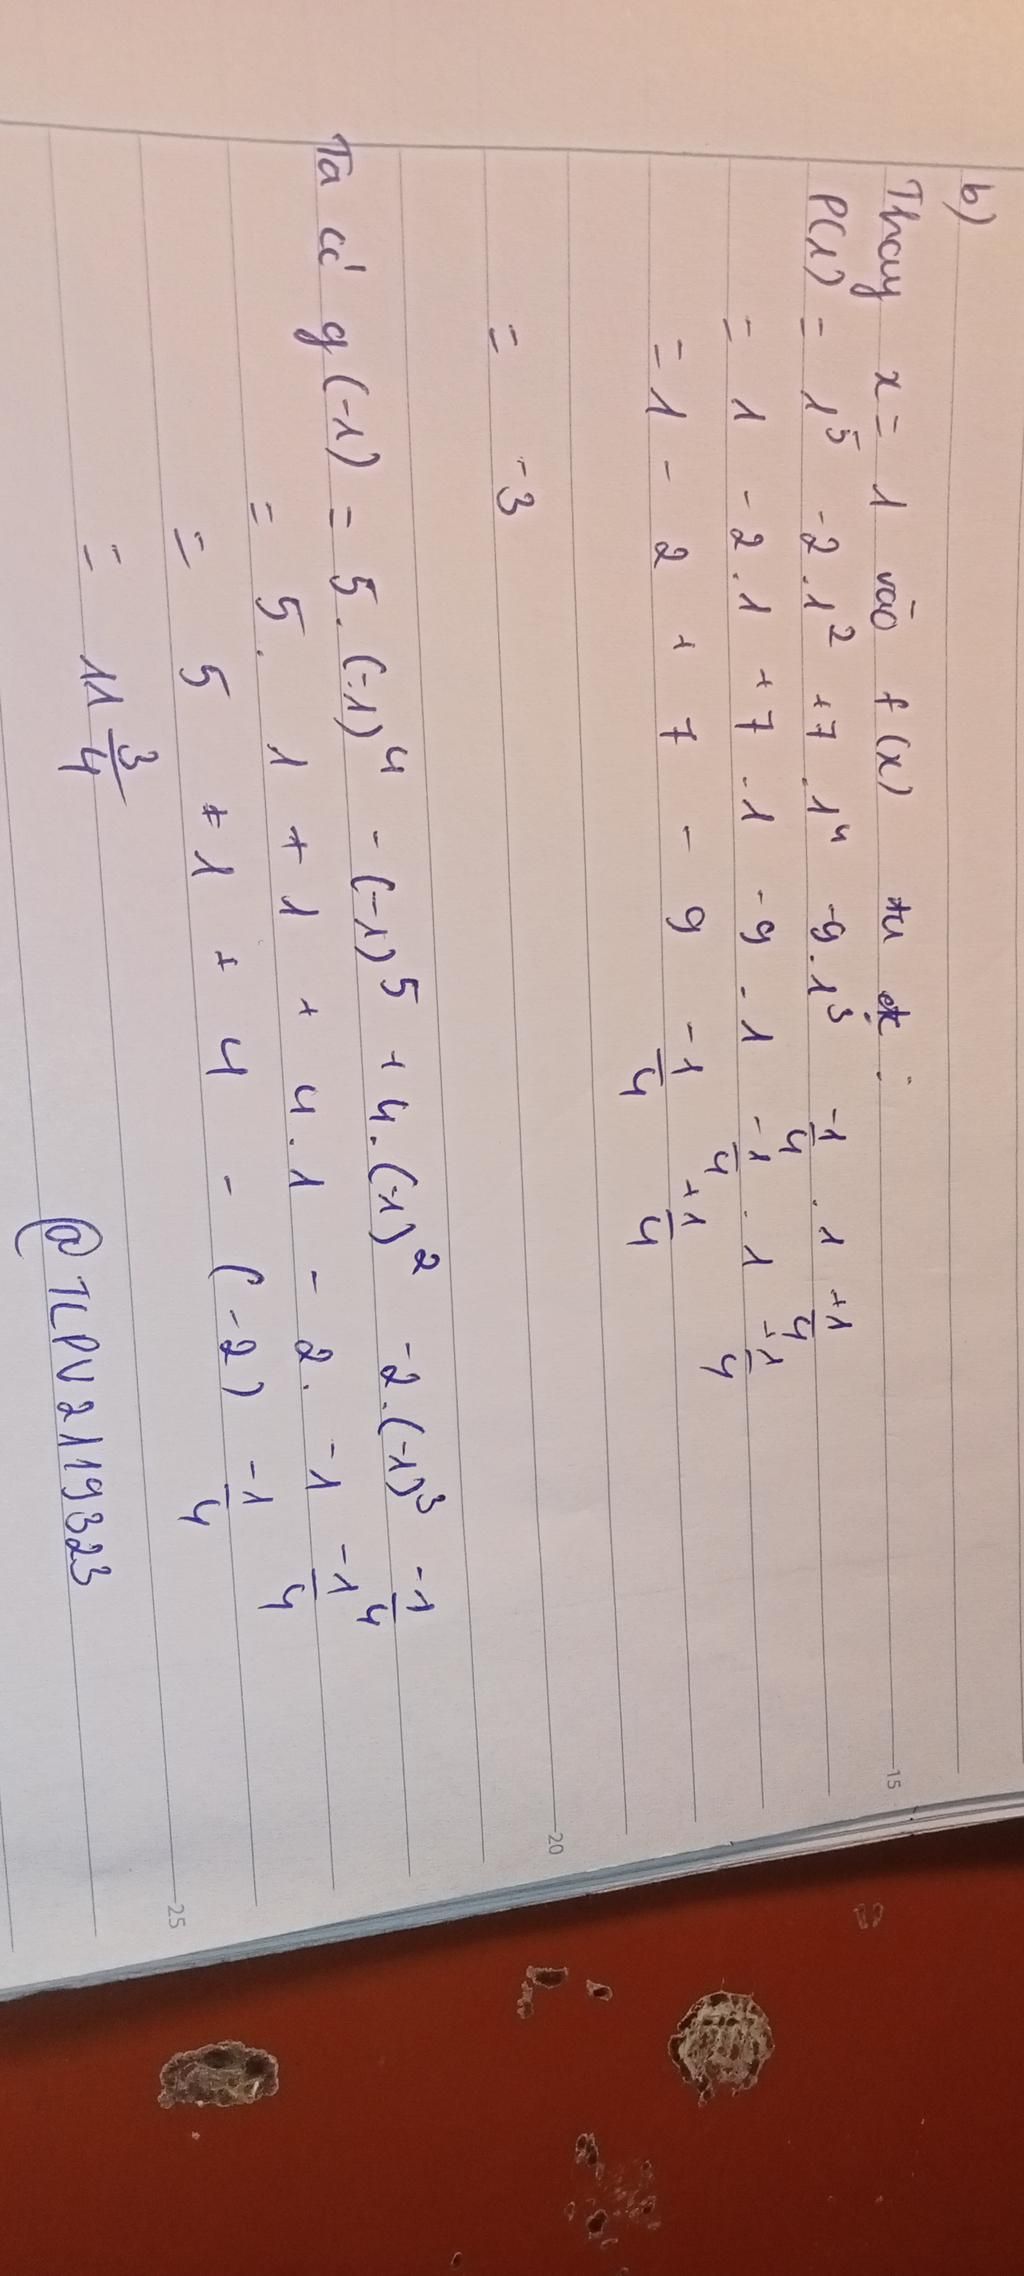 b)
Thay x = 1 vào f(x) ta đc :
P(1) = 1⁵ -2.1² +7.1⁴ -9.1³ -1/4 . 1 +1/4
= 1 -2.1 +7.1 -9.1 -1/4 . 1 +1/4
= 1 - 2 + 7 - 9 -1/4 +1/4
= -3
Ta có g(-1) = 5.(-1)⁴ -(-1)⁵ +4.(-1)² -2.(-1)³ -1/4
= 5.1 +1 + 4.1 - 2. -1 -1/4
= 5 +1 + 4 - (-2) -1/4
= 11 3/4
@TLPV2119323
15
20
25